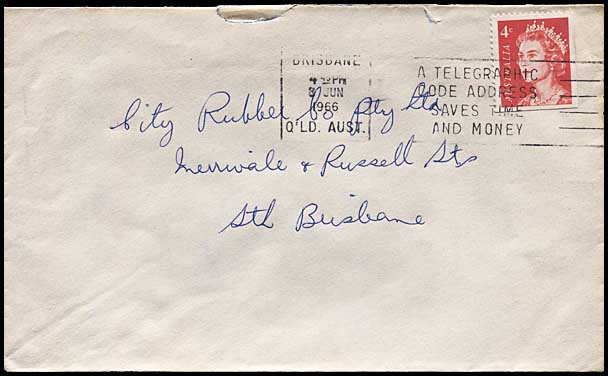 4c
AUSTRALIA
BRISBANE
4 PM
3 JUN
1966
Q'LD. AUST.
A TELEGRAPHIC
CODE ADDRESS
SAVES TIME
AND MONEY
City Rubber Co Pty Ltd
Merrivale & Russell Sts
Sth Brisbane